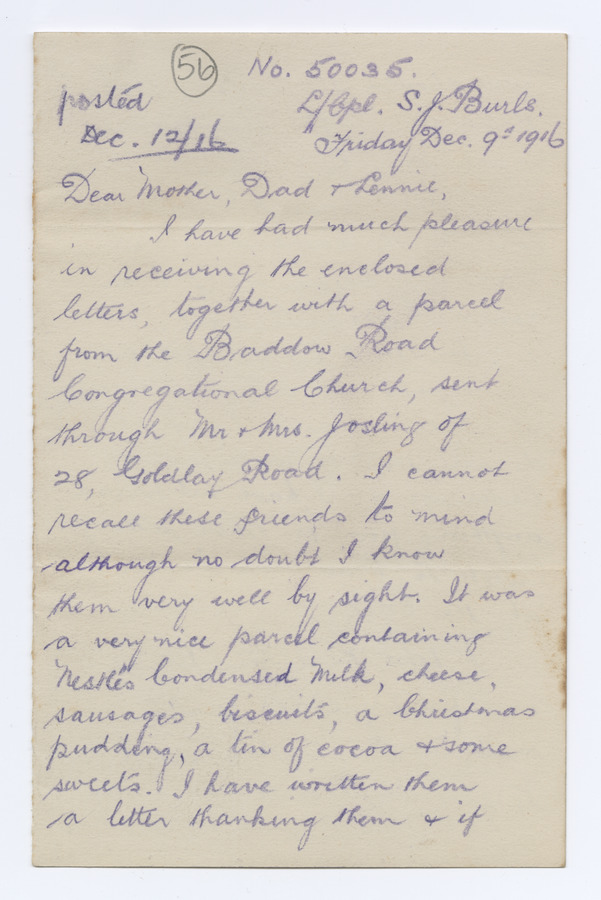 56
No. 50035.
posted
L/Cpl. S. J. Burls.
Dec. 12/16
Friday Dec. 9th 1916
Dear Mother, Dad & Lennie,
I have had much pleasure
in receiving the enclosed
letters, together with a parcel
from the Baddow Road
Congregational Church, sent
through Mr & Mrs. Josling of
28, Goldlay Road. I cannot
recall these friends to mind
although no doubt I know
them very well by sight. It was
a very nice parcel containing
Nestlés Condensed Milk, cheese,
sausages, biscuits, a Christmas
pudding, a tin of cocoa & some
sweets. I have written them
a letter thanking them & if